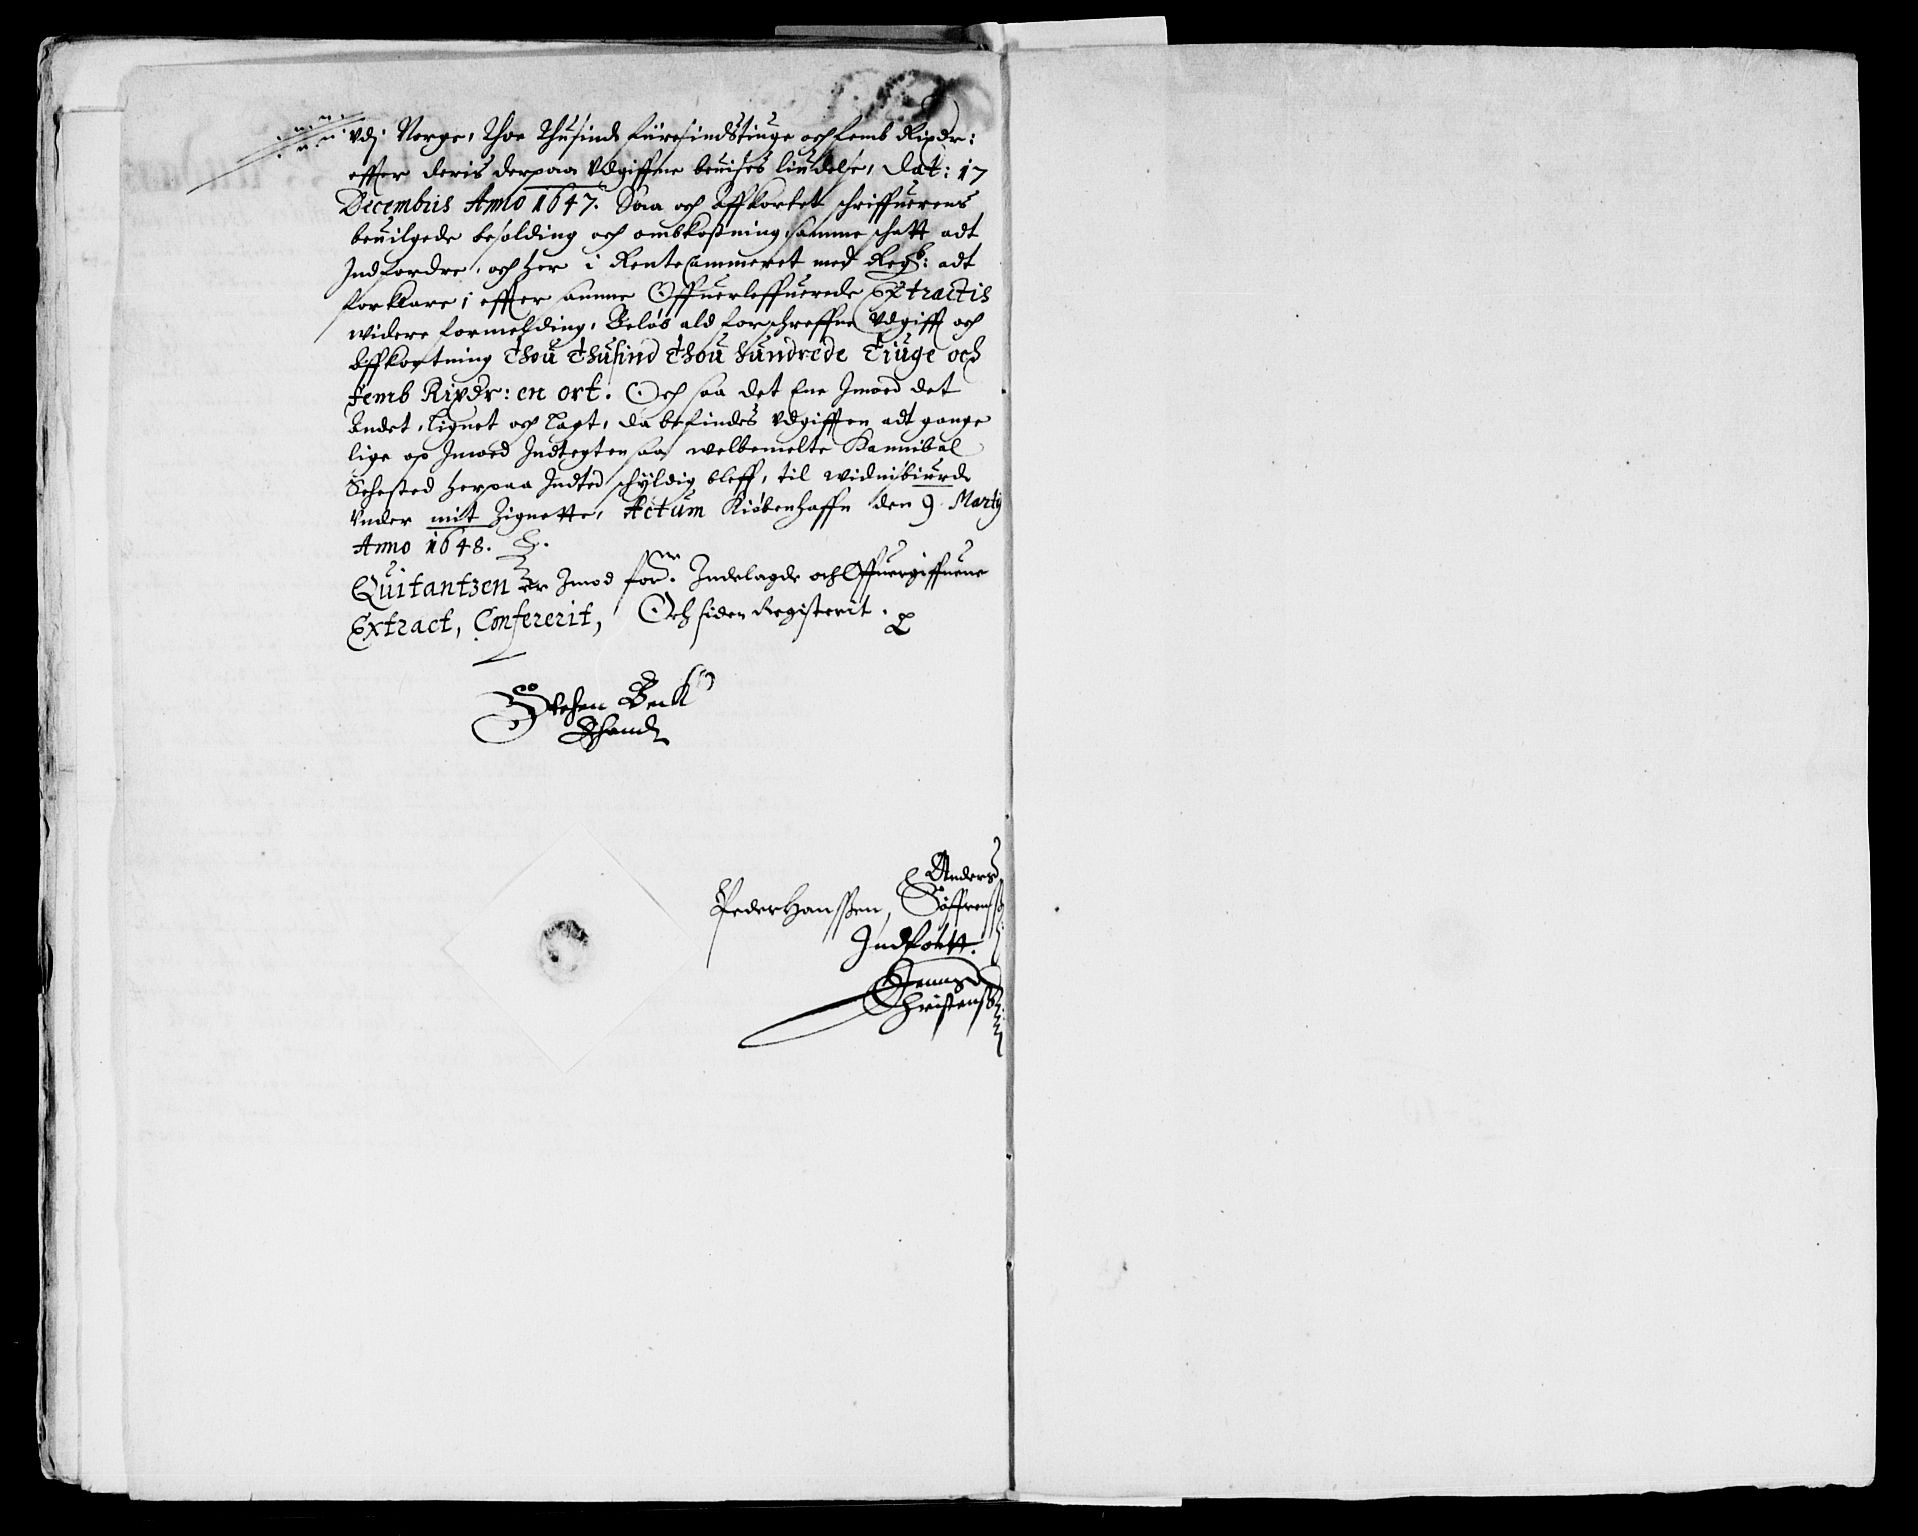 vdj Norge, Thoe Thusinde fiiresindstiuge och femb Rixdr:
effter deris derpaa Udgiffne beuises liudelse, Dat: 17
Decembris Anno 1647. Saa och Affkortet schriffuerens
beuilgede besolding och ombkostning, samme schatt adt
Indfordre, och her i Rente Cammeret med Regb: adt
forklare, effter samme Offuerleffuerede Extractis
widere formelding, Beløb ald forschreffne Udgifft och
Affkortning Thou Thusind Thou Hundrede Tiuge och
femb Rixdr: en ort. Och saa det Ene Imoed det
Andet, lignet och lagt, da befindes Udgifften adt gange
lige op Imoed Indtegten saa welbemelte Hannibal
Sehested herpaa Indted schyldig bleff, til widnisbiurd
Under mit Zignette, Actum Kiøbenhaffn den 9 Martij
Anno 1648.
Quitantzen er Imod for: Indelagde och Offuergiffuene
Extract, Confererit, Och siden Registerit.
Stehen Beck
Ehand
Anders
Peder Hanssen, Søffrens
Indført.
Jennsd
Christenss